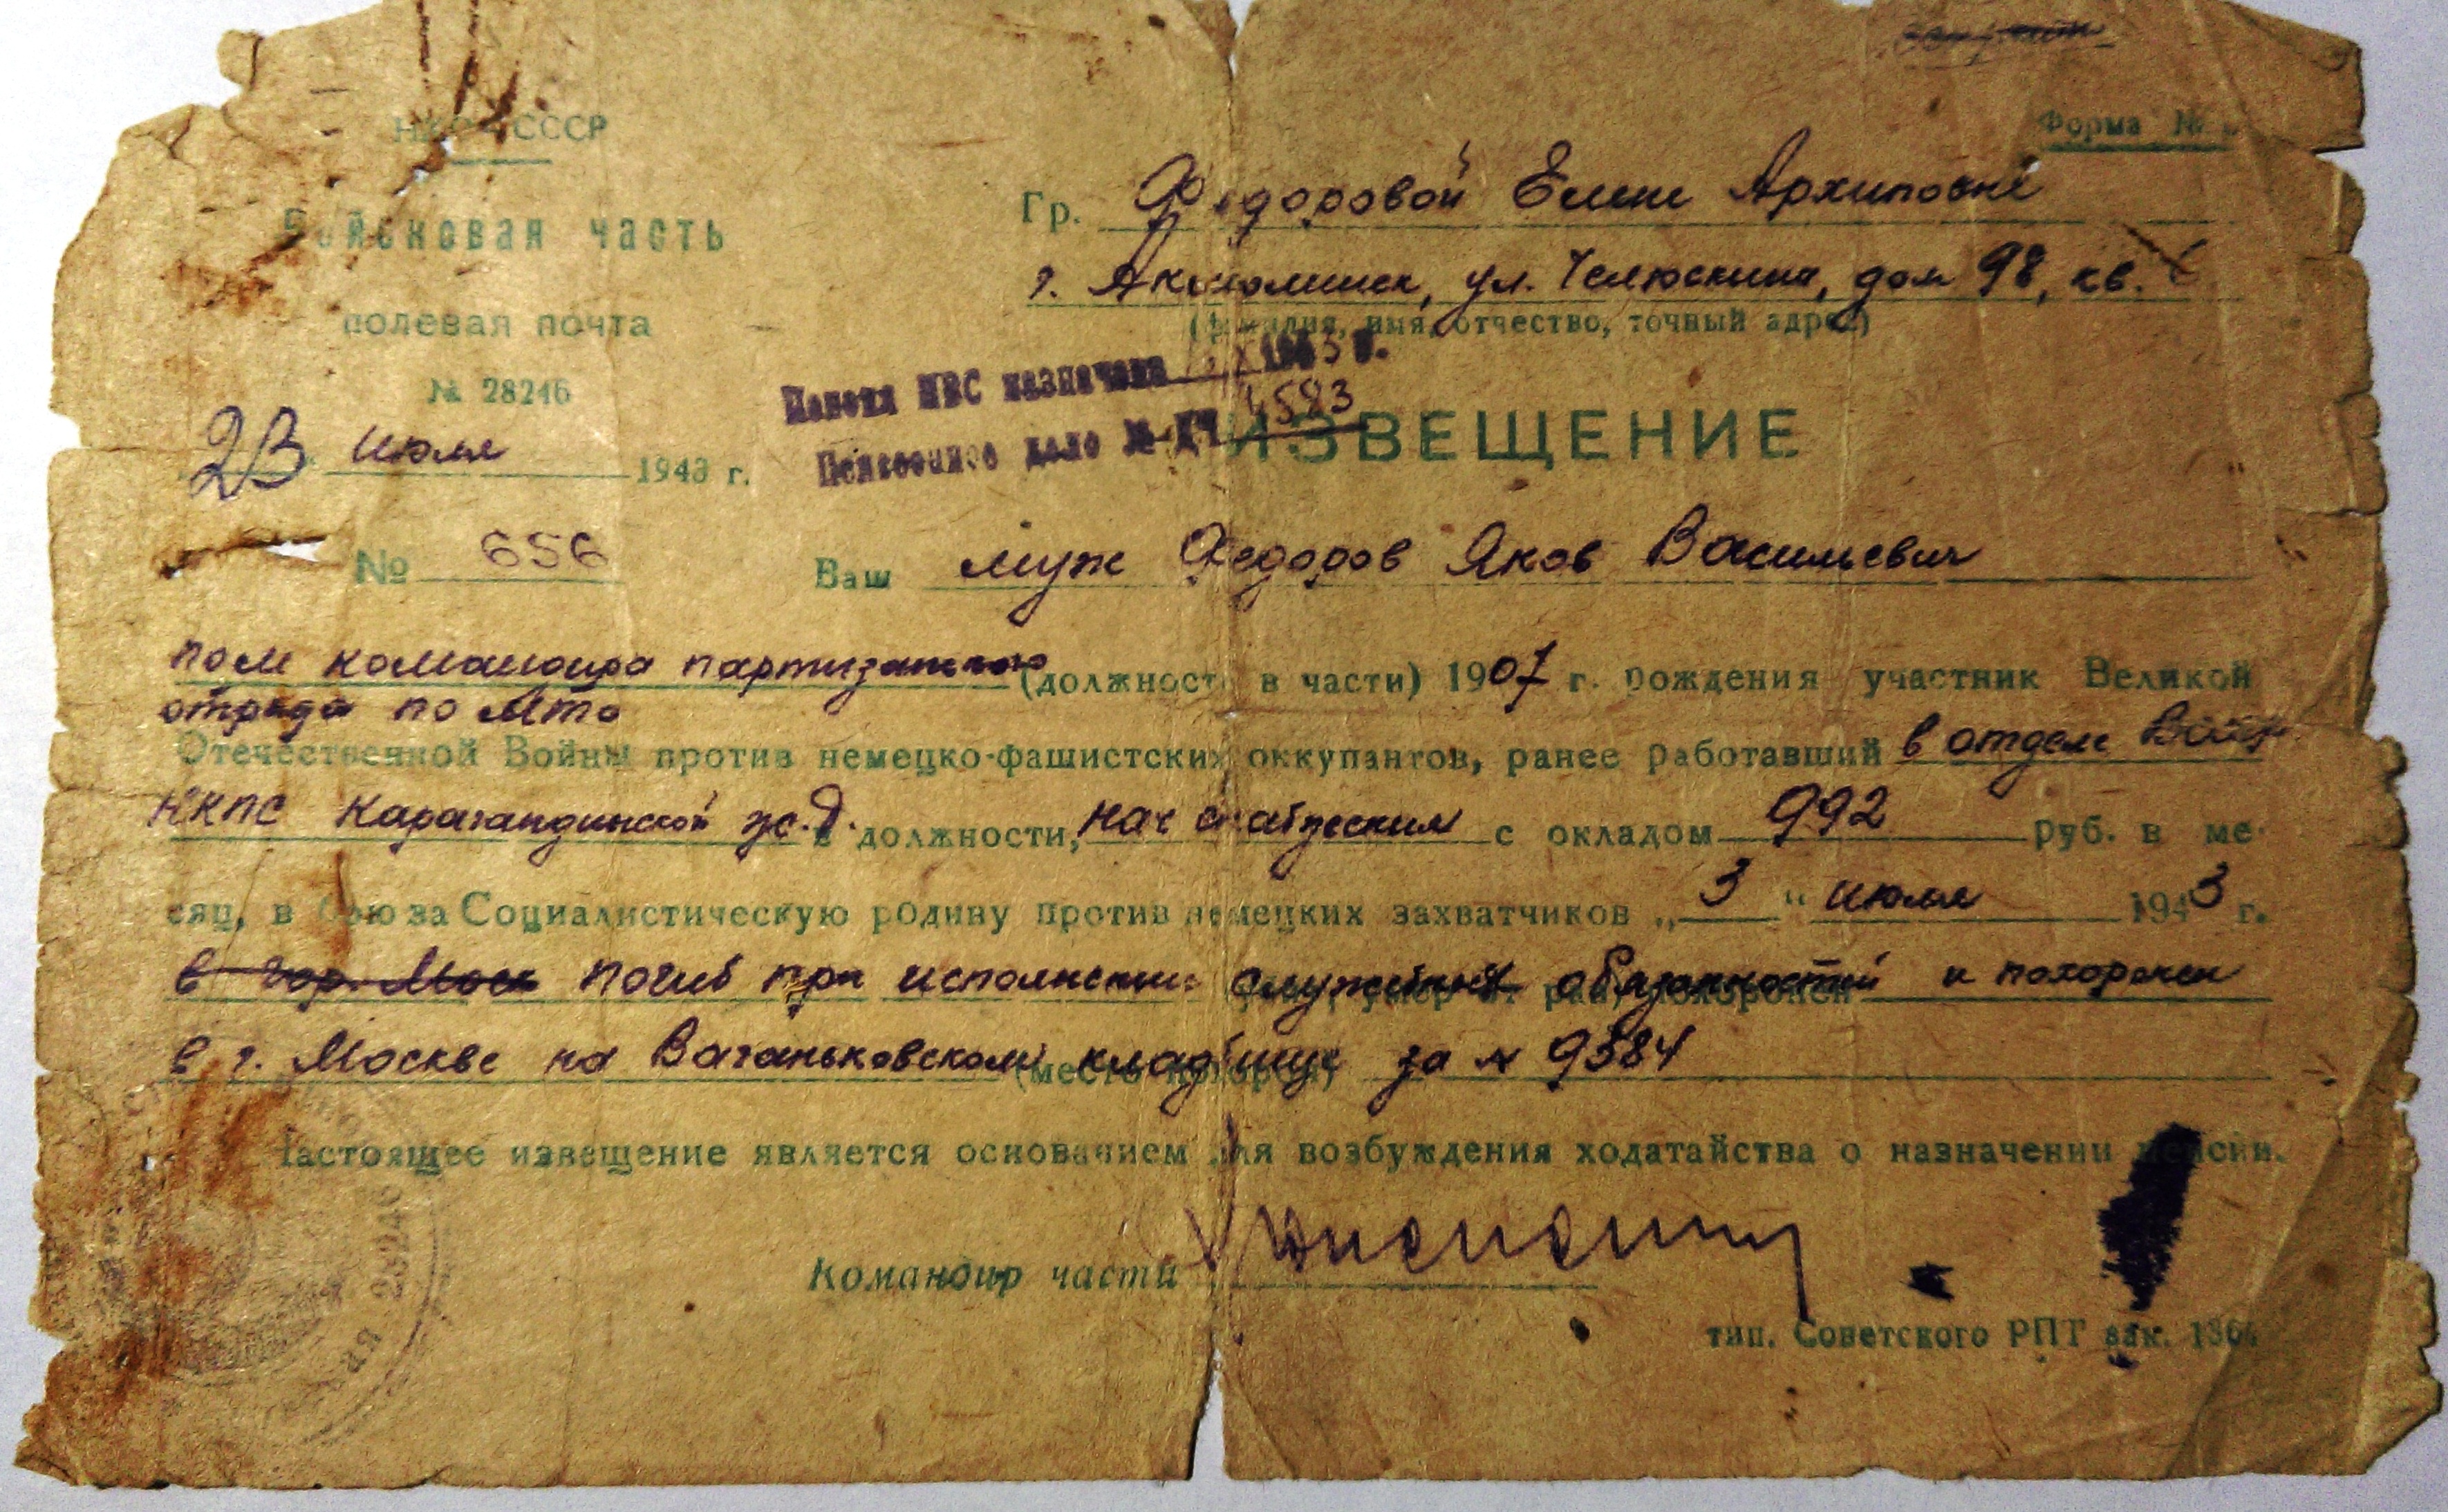 СССР
Форма №
Войсковая часть
полевая почта
№ 28246
23 июля 1943 г.
№ 656
Гр. Федоровой Елене Архиповне
г. Акмолинск, ул. Челюскина, дом 98, кв.
(фамилия, имя, отчество, точный адрес)
Пенсия НВС назначена 1943 г.
Пенсионное дело № 4583
ИЗВЕЩЕНИЕ
Ваш муж Федоров Яков Васильевич
пом командира партизанского (должность в части) 1907 г. рождения участник Великой
отряда по МТО
Отечественной Войны против немецко-фашистских оккупантов, ранее работавший в отделе
НКПС Карагандинской ж.д. в должности, нач с окладом 992 руб. в ме-
сяц, в бою за Социалистическую родину против немецких захватчиков „3" июля 1943 г.
в гор. Моск погиб при исполнении служебных обязанностей и похоронен
в г. Москве на Ваганьковском кладбище за № 9384
Настоящее извещение является основанием для возбуждения ходатайства о назначении пенсии.
Командир части
тип. Советского РПТ зак.
28246